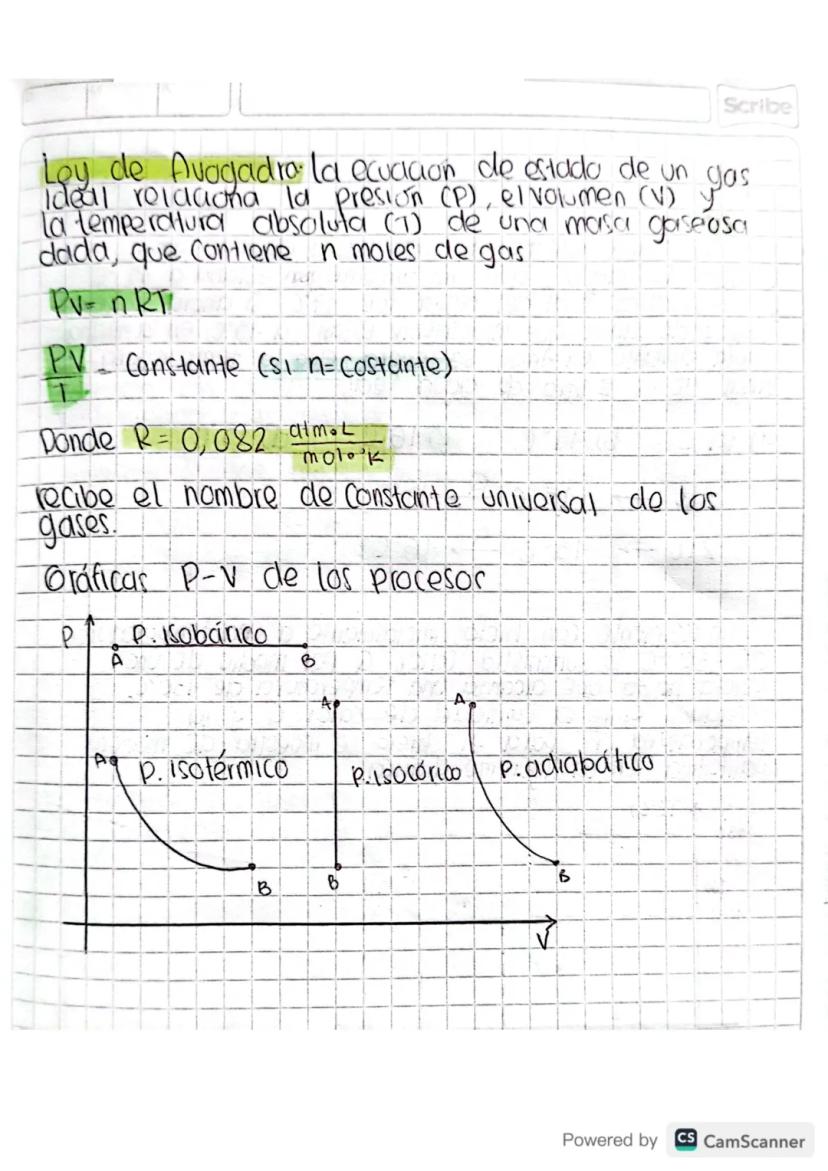 Scribe
Ley de Avogadro: la ecuación de estado de un gas
ideal relaciona la presión (P), el volumen (V) y
la temperatura absoluta (T) de una masa gaseosa
dada, que contiene n moles de gas
PV= nRT
PV/T = Constante (si n=Costante)
Donde R= 0,082 atm.L/mol.°K
recibe el nombre de Constante universal de los
gases.
Gráficas P-V de los procesos
P
P. isobárico
A B
A A
A P. isotérmico P. isocórico P. adiabático
B B B
V
Powered by CS CamScanner